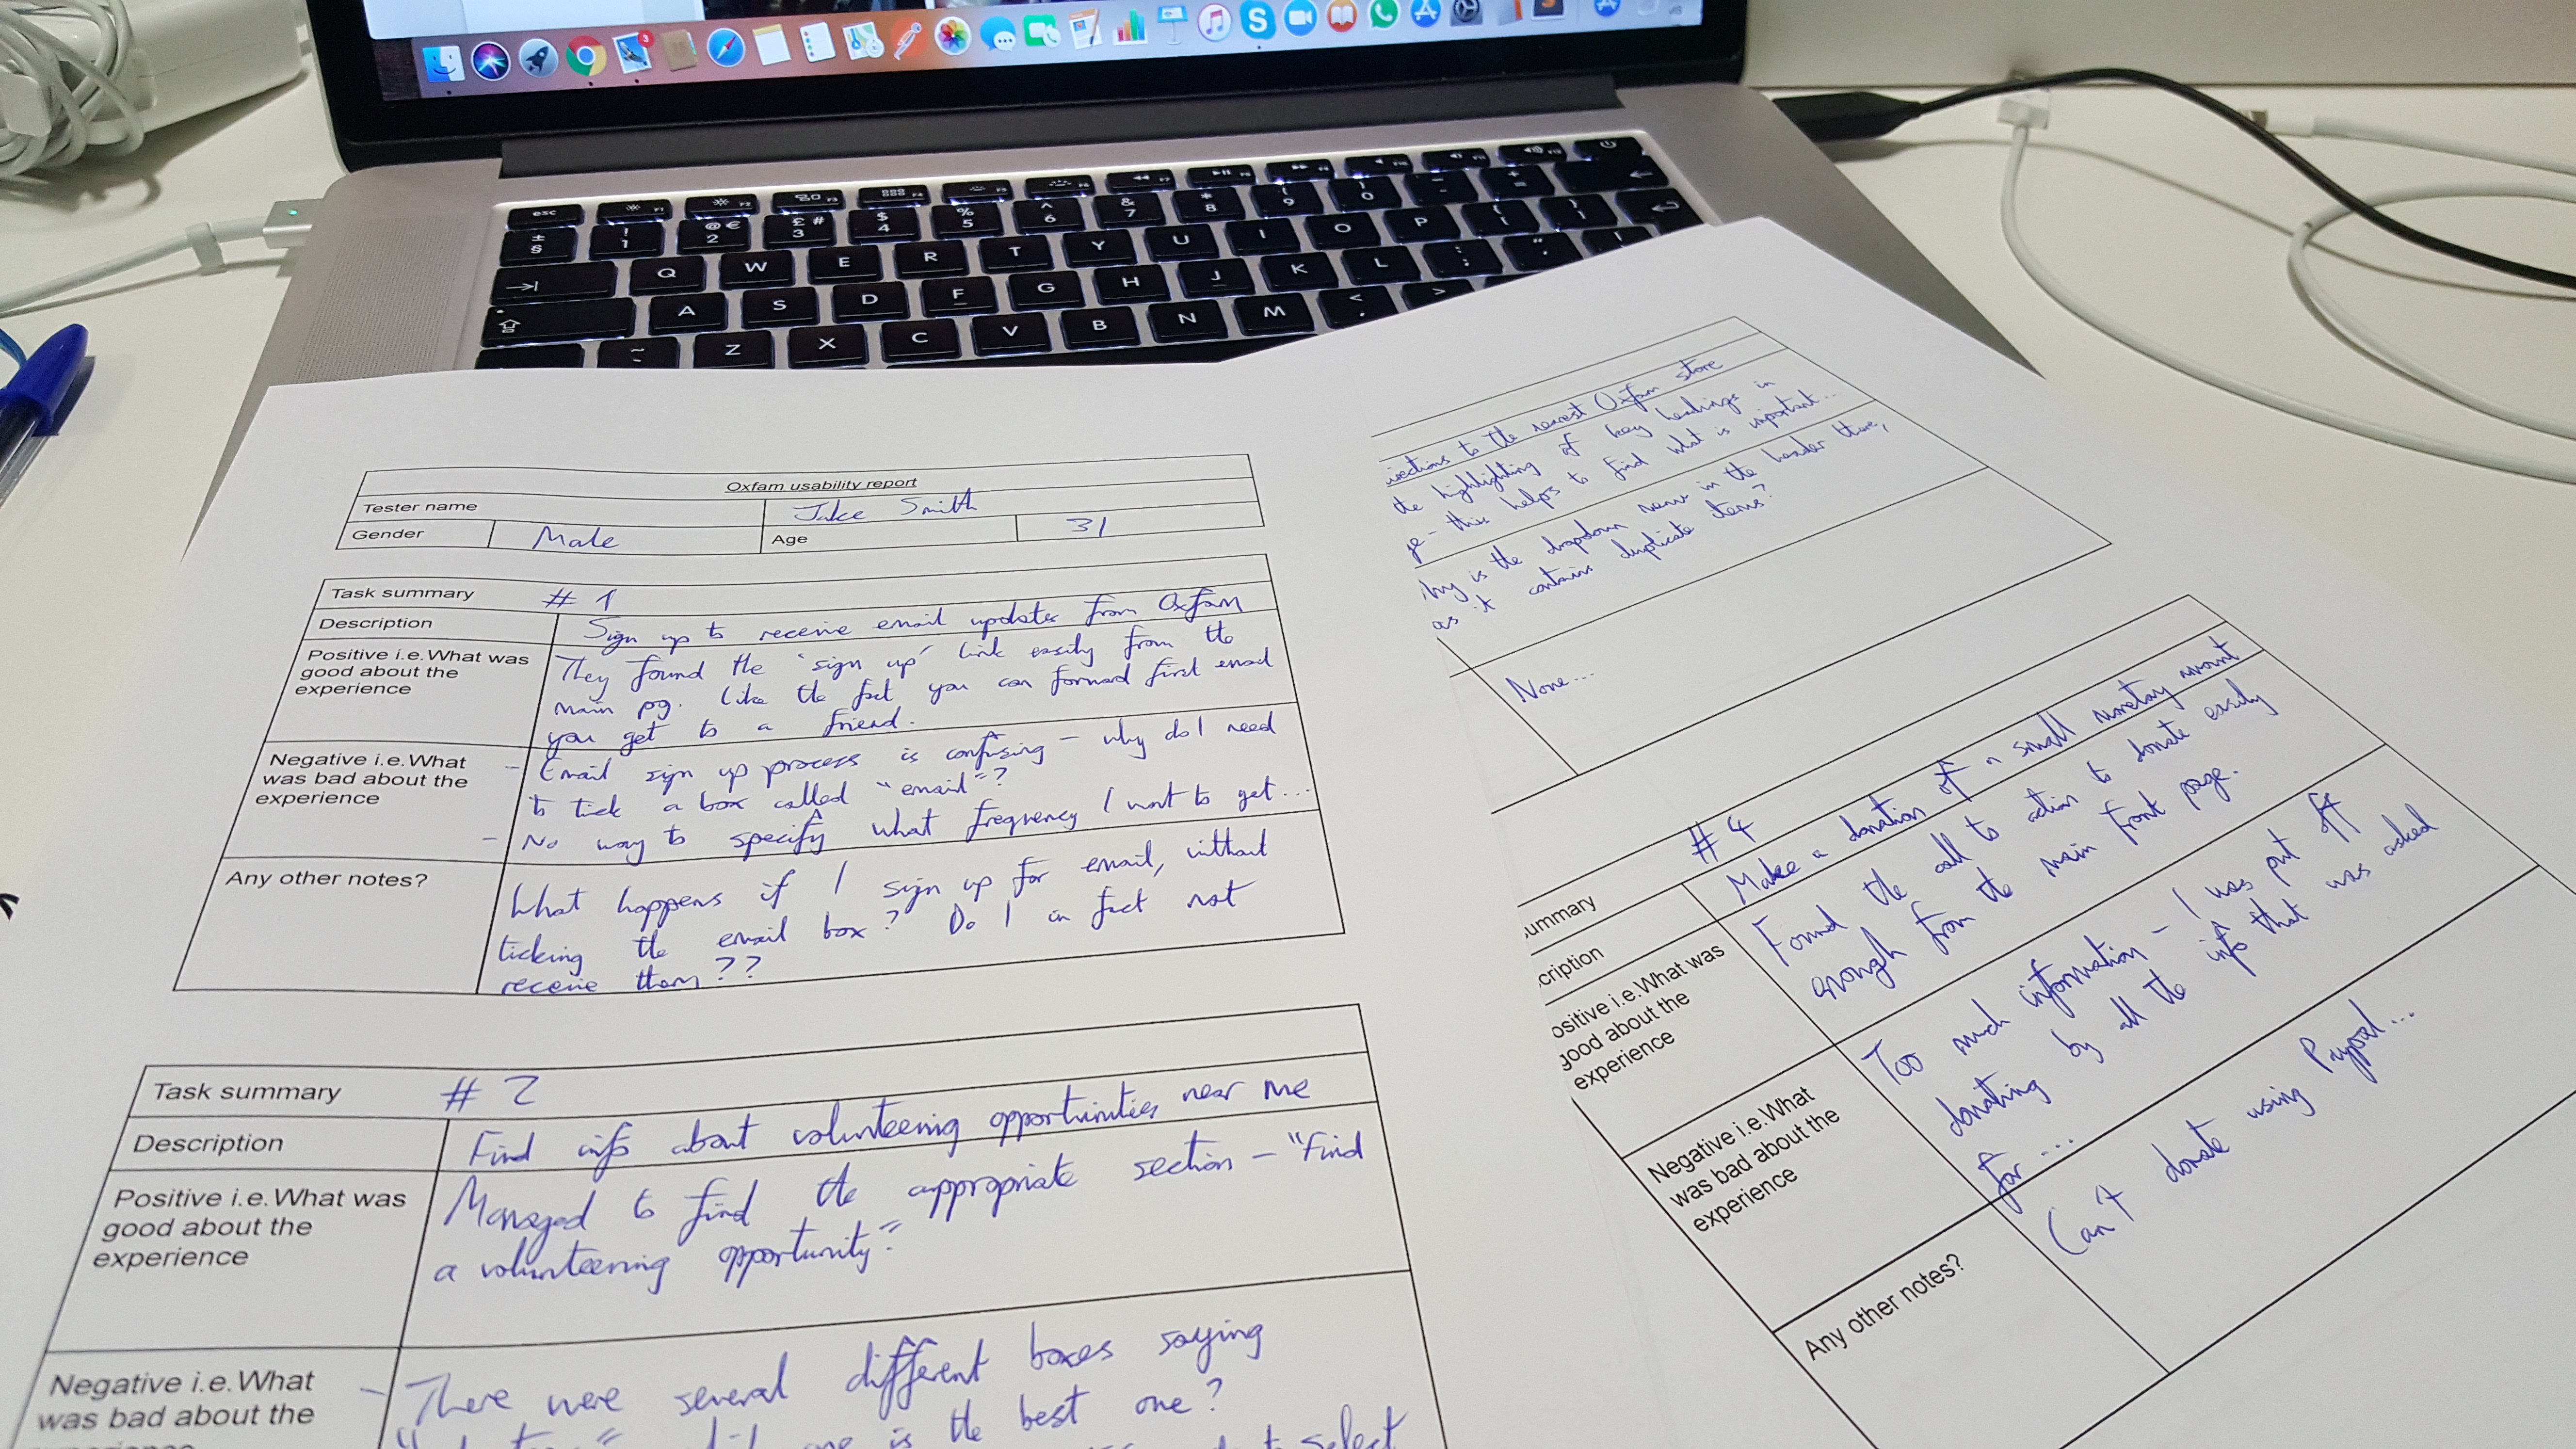 esc
F1
F2
F3
F4
F5
F6
F7
F8
F9
F10
F11
F12
± §
! 1
@ € 2
£ # 3
$ 4
% 5
^ 6
& 7
* 8
( 9
) 0
Q W E R T Y U I O P
A S D F G H J K L
Z X C V B N M
3
Oxfam usability report
Tester name Jake Smith
Gender Male Age 31
Task summary # 1
Description Sign up to receive email updates from Oxfam
Positive i.e.What was
good about the
experience
They found the 'sign up' link easily from the
main pg. Like the fact you can forward first email
you get to a friend.
Negative i.e.What
was bad about the
experience
- Email sign up process is confusing - why do I need
to tick a box called "email"?
- No way to specify what frequency I want to get...
Any other notes?
What happens if I sign up for email, without
ticking the email box? Do I in fact not
receive them??
Task summary # 2
Description Find info about volunteering opportunities near me
Positive i.e.What was
good about the
experience
Managed to find the appropriate section - "Find
a volunteering opportunity"
Negative i.e.What
was bad about the
- There were several different boxes saying
one is the best one?
to select
ections to the nearest Oxfam store
the highlighting of key headings in
ge - this helps to find what is important...
hy is the dropdown menu in the header there,
as it contains duplicate items?
None...
ummary # 4
cription Make a donation of a small monetary amount
ositive i.e.What was
good about the
experience
Found the call to action to donate easily
enough from the main front page.
Negative i.e.What
was bad about the
experience
Too much information - I was put off
donating by all the info that was asked
for...
Any other notes?
Can't donate using Paypal...